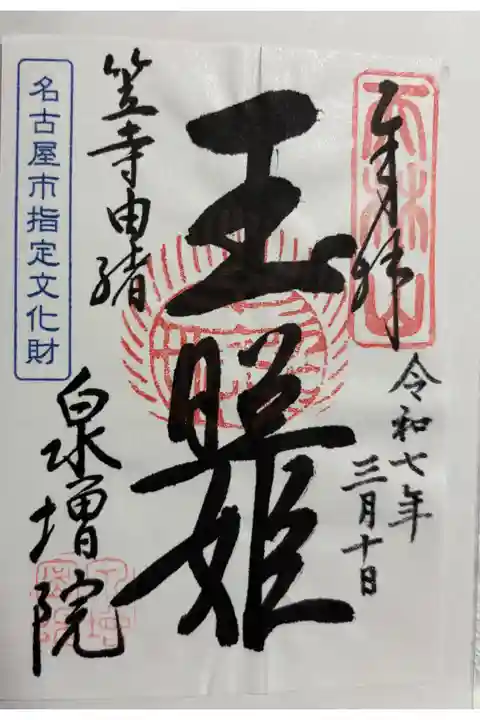 奉拝
天林山
令和七年
三月十日
玉照姫
笠寺由緒
泉増院
名古屋市指定文化財